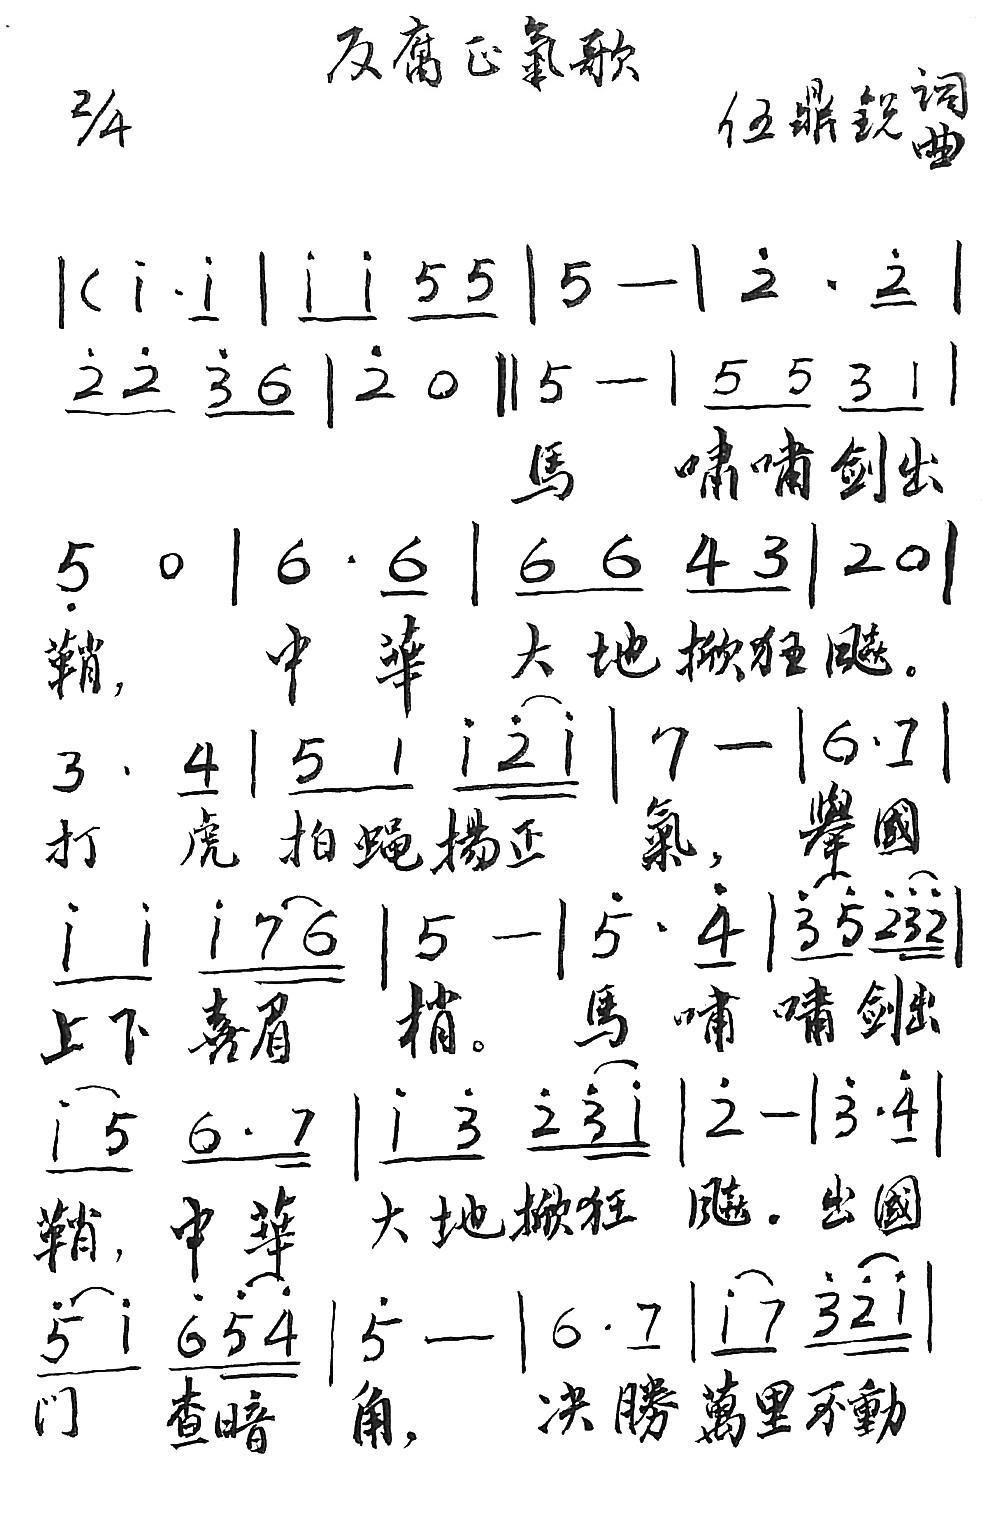 反腐正氣歌
2/4
伍鼎銳 詞
曲
|( i · i | i i 5 5 | 5 — | 2 · 2 |
2 2 3 6 | 2 0 || 5 — | 5 5 3 1 |
馬 嘯嘯劍出
5 0 | 6 · 6 | 6 6 4 3 | 2 0 |
鞘, 中 華 大地掀狂飈。
3 · 4 | 5 1 i 2 i | 7 — | 6 · 7 |
打 虎 拍蝇揚正 氣, 舉國
i i i 7 6 | 5 — | 5 · 4 | 3 5 2 3 2 |
上下 喜眉 梢。 馬 嘯 嘯劍出
i 5 6 · 7 | i 3 2 3 i | 2 — | 3 · 4 |
鞘, 中華 大地掀狂 飈. 出國
5 i 6 5 4 | 5 — | 6 · 7 | i 7 3 2 i |
门 查暗 角, 决勝萬里不動